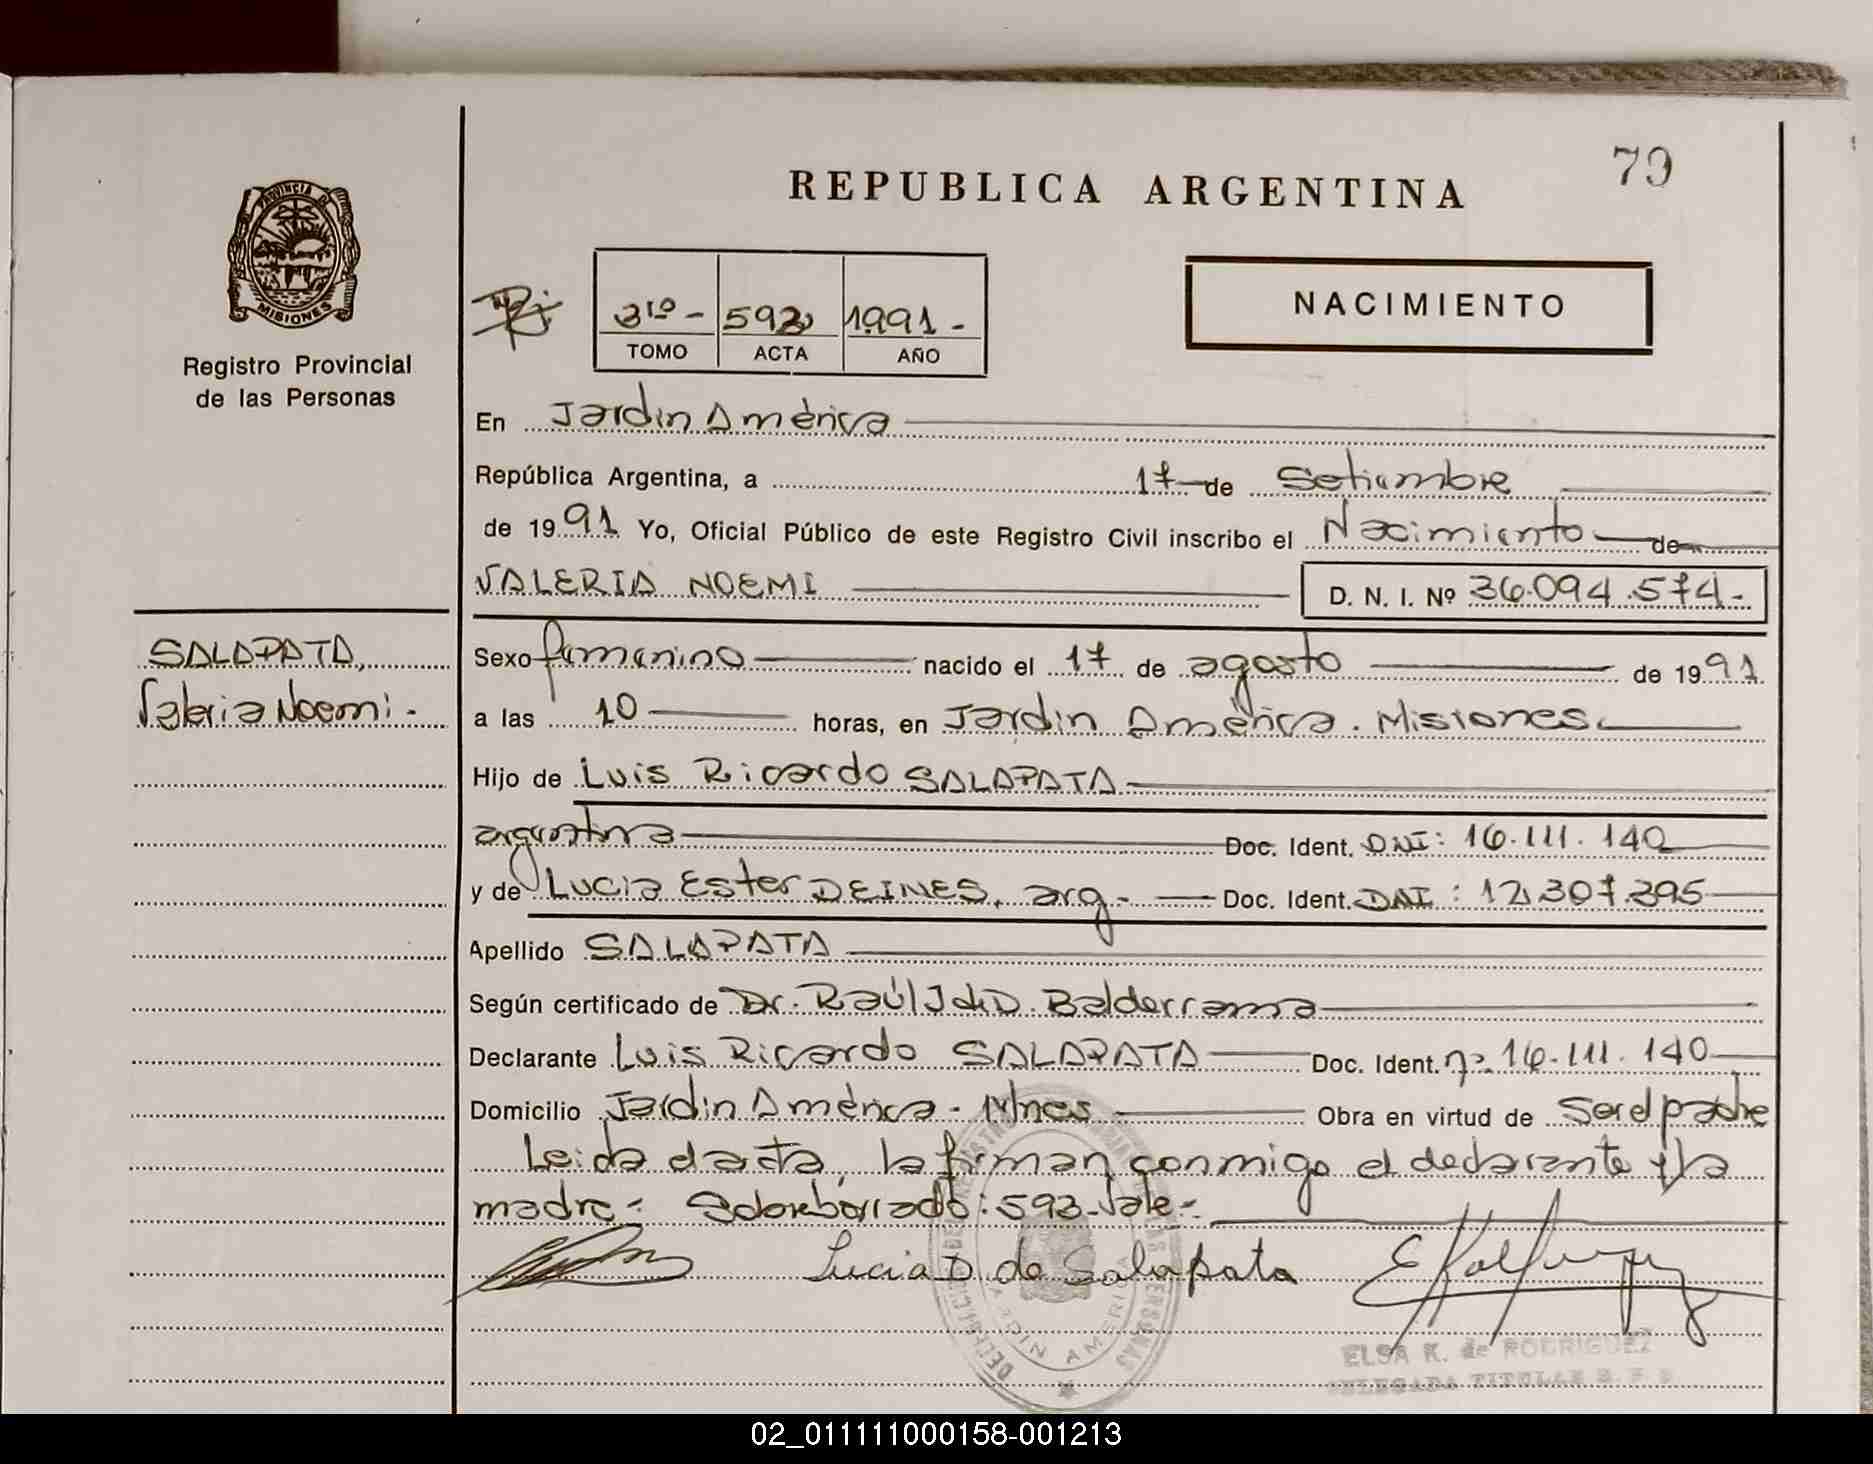 79
REPUBLICA ARGENTINA
PROVINCIA DE
MISIONES
Registro Provincial
de las Personas
3ro - 593 1991 -
TOMO ACTA AÑO
NACIMIENTO
En Jardin América
República Argentina, a 17 de Setiembre
de 1991 Yo, Oficial Público de este Registro Civil inscribo el Nacimiento de
VALERIA NOEMI D. N. I. Nº 36.094.574-
SALAPATA,
Valeria Noemi -
Sexo femenino nacido el 17 de agosto de 1991
a las 10 horas, en Jardin América. Misiones
Hijo de Luis Ricardo SALAPATA
argentina Doc. Ident. DNI: 16.111.140
y de Lucia Ester DEINES, arg. Doc. Ident. DNI: 12.307.395
Apellido SALAPATA
Según certificado de Dr. Raúl J de D. Balderrama
Declarante Luis Ricardo SALAPATA Doc. Ident. nº 16.111.140
Domicilio Jardin América - Mnes Obra en virtud de Ser el padre
Leida el acta, la firman conmigo el declarante y la
madre - Sobreborrado: 593 - Vale -
Lucia D. de Salapata
ELSA K. de RODRIGUEZ
DELEGADA TITULAR R. P. P.
JARDIN AMERICA
02_011111000158-001213